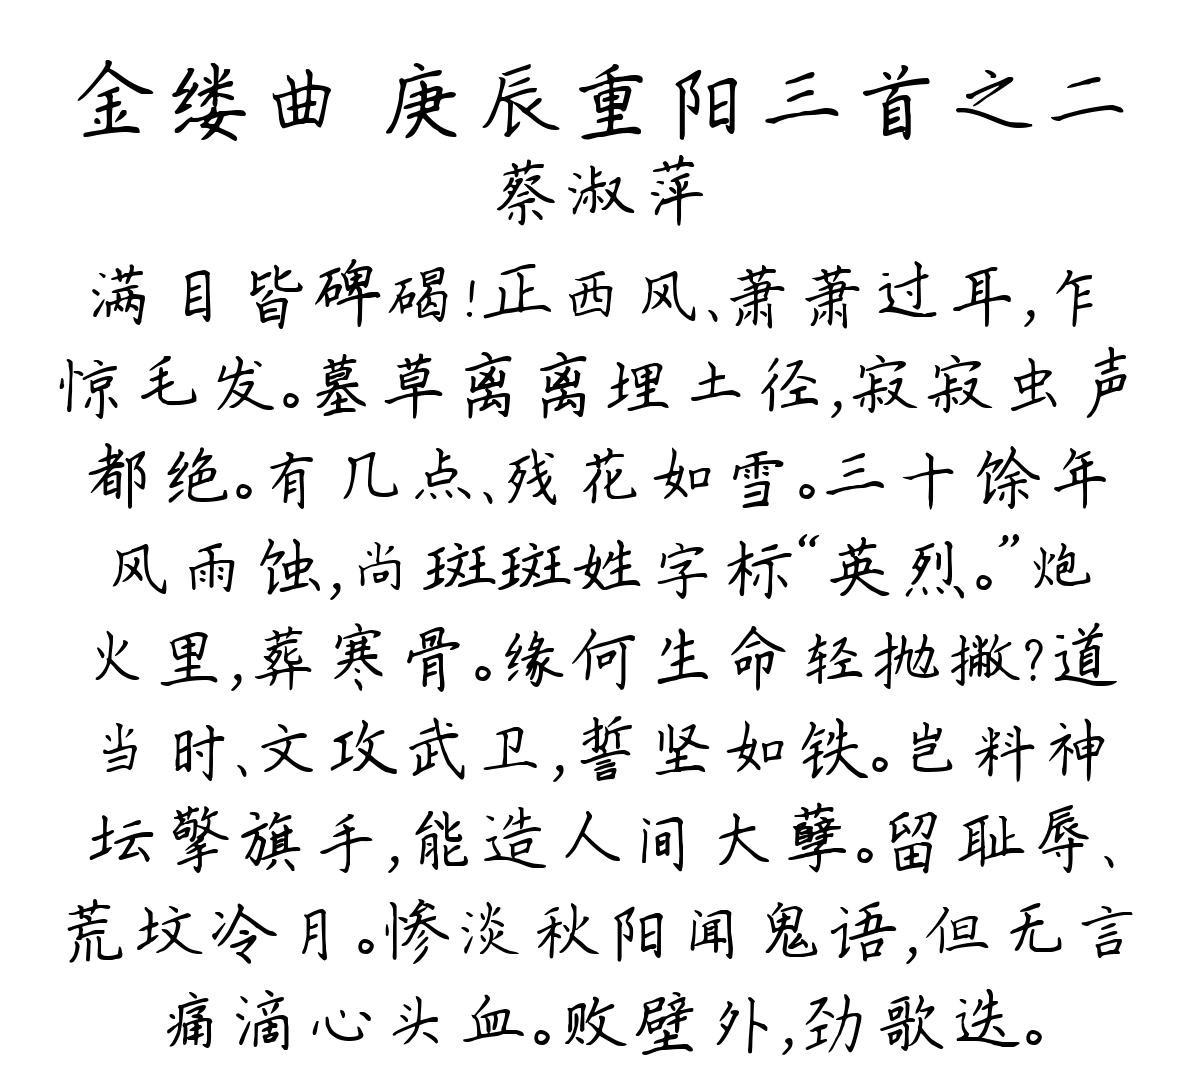 金缕曲 庚辰重阳三首之二
蔡淑萍
满目皆碑碣!正西风、萧萧过耳,乍
惊毛发。墓草离离埋土径,寂寂虫声
都绝。有几点、残花如雪。三十馀年
风雨蚀,尚斑斑姓字标“英烈。”炮
火里,葬寒骨。缘何生命轻抛撇?道
当时、文攻武卫,誓坚如铁。岂料神
坛擎旗手,能造人间大孽。留耻辱、
荒坟冷月。惨淡秋阳闻鬼语,但无言
痛滴心头血。败壁外,劲歌迭。